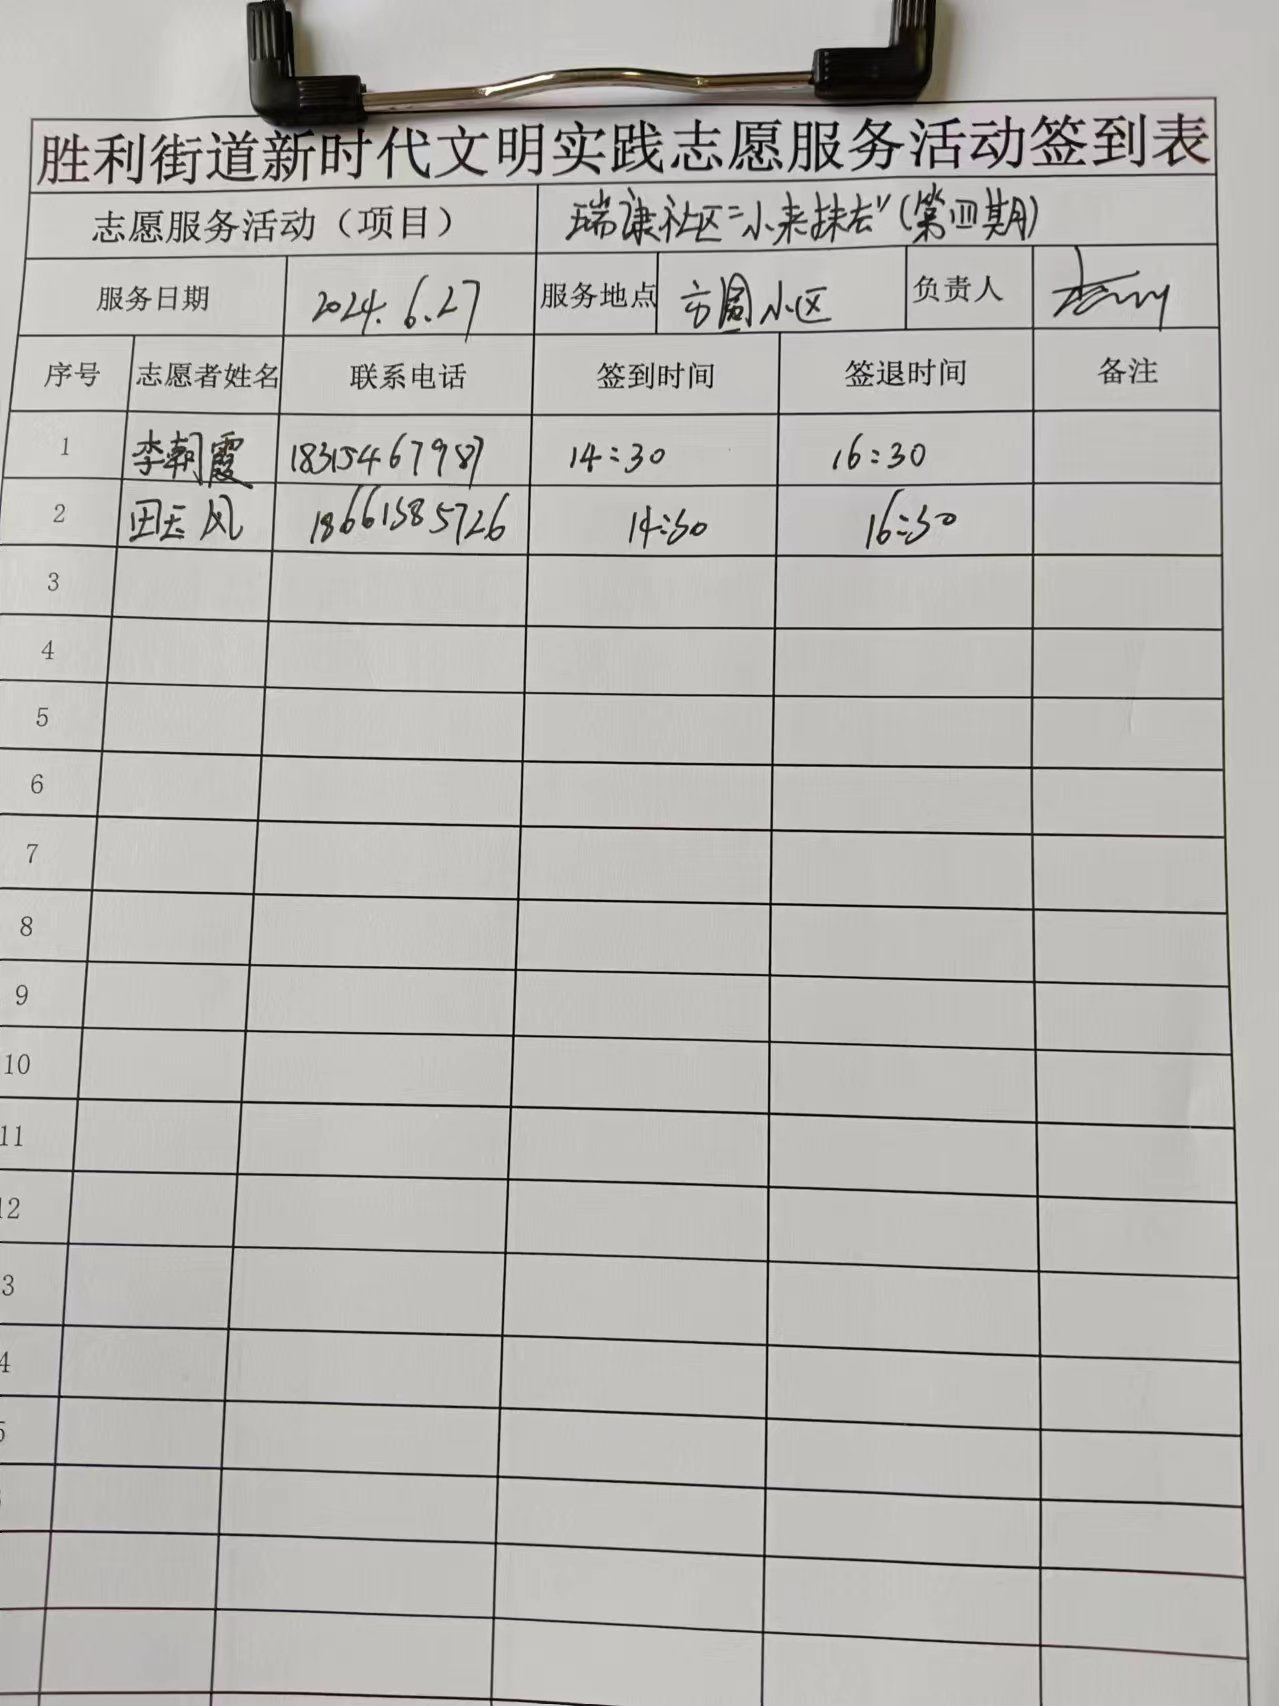 胜利街道新时代文明实践志愿服务活动签到表
志愿服务活动（项目） 瑞康社区"小来抹去"（第四期）
服务日期 2024.6.27 服务地点 方圆小区 负责人
序号 志愿者姓名 联系电话 签到时间 签退时间 备注
1 李朝霞 18315467987 14:30 16:30
2 田玉风 18661385726 14:30 16:30
3
4
5
6
7
8
9
10
11
12
3
4
5